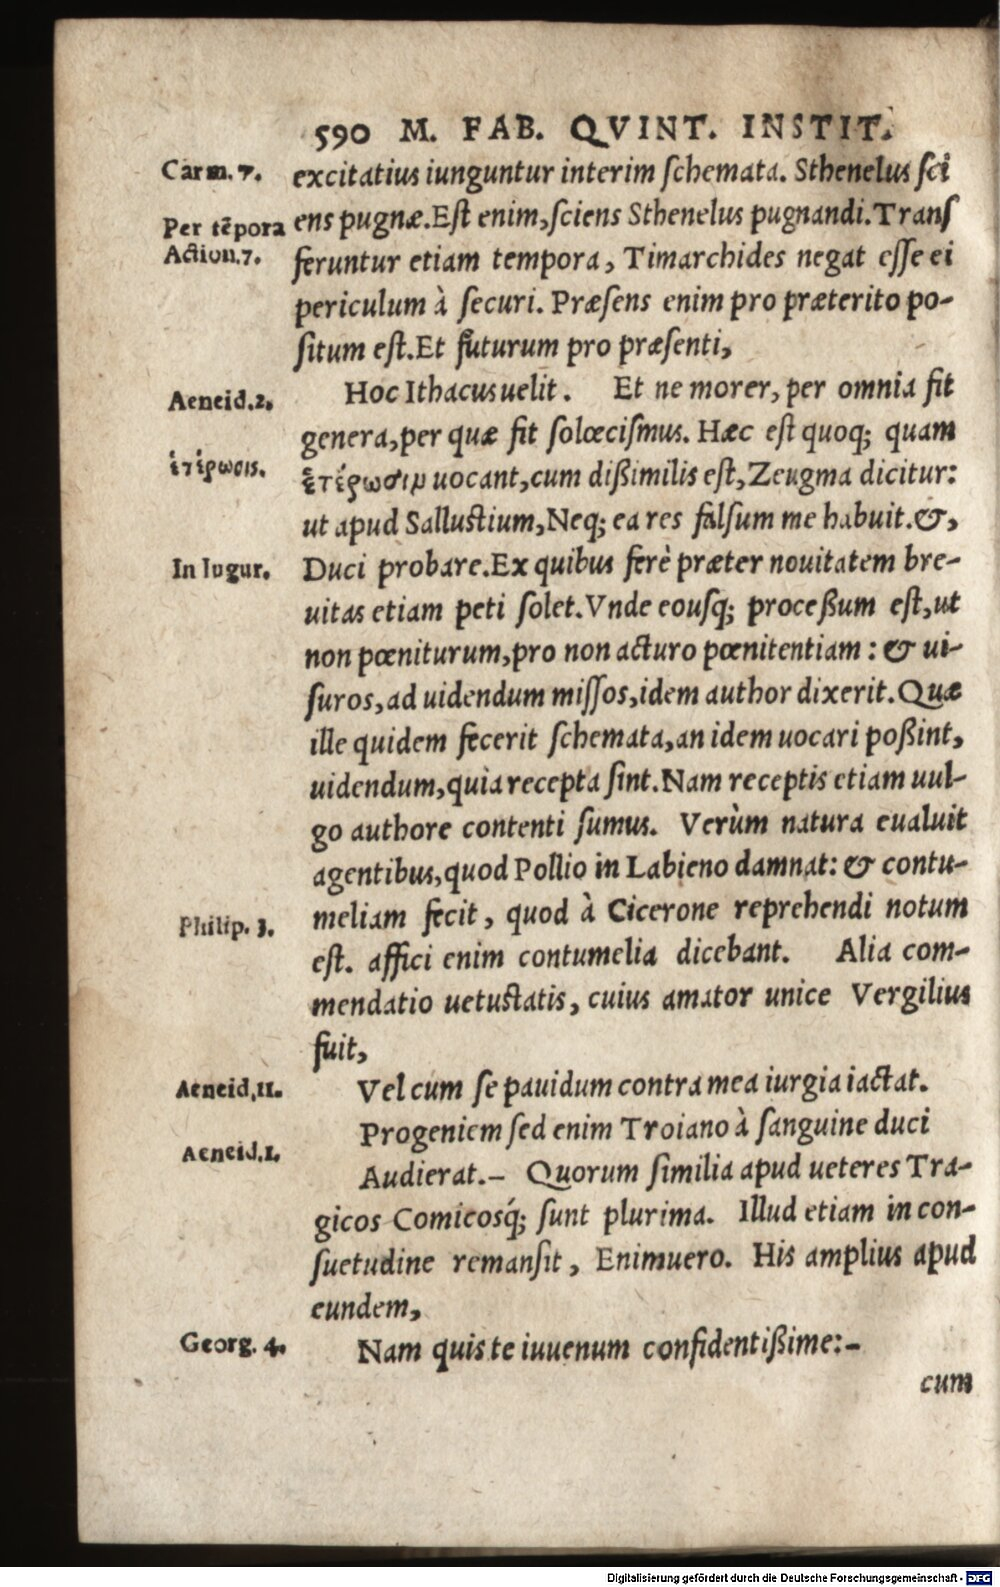 590 M. FAB. QVINT. INSTIT.
Carm. 7.
excitatius iunguntur interim ſchemata. Sthenelus ſci
Per tẽpora
ens pugnæ. Eſt enim, ſciens Sthenelus pugnandi. Tranſ
Action. 7.
feruntur etiam tempora, Timarchides negat eſſe ei
periculum à ſecuri. Præſens enim pro præterito po-
ſitum eſt. Et futurum pro præſenti,
Aeneid. 2.
Hoc Ithacus uelit. Et ne morer, per omnia fit
genera, per quæ fit ſolœciſmus. Hæc eſt quoq; quam
ἑτέρωσις.
ἑτέρωσιμ uocant, cum dißimilis eſt, Zeugma dicitur:
ut apud Salluſtium, Neq; ea res falſum me habuit. &,
In Iugur.
Duci probare. Ex quibus ferè præter nouitatem bre-
uitas etiam peti ſolet. Vnde eouſq; proceßum eſt, ut
non pœniturum, pro non acturo pœnitentiam: & ui-
ſuros, ad uidendum miſſos, idem author dixerit. Quæ
ille quidem fecerit ſchemata, an idem uocari poßint,
uidendum, quia recepta ſint. Nam receptis etiam uul-
go authore contenti ſumus. Verùm natura eualuit
agentibus, quod Pollio in Labieno damnat: & contu-
Philip. 3.
meliam fecit, quod à Cicerone reprehendi notum
eſt. affici enim contumelia dicebant. Alia com-
mendatio uetuſtatis, cuius amator unice Vergilius
fuit,
Aeneid. 11.
Vel cum ſe pauidum contra mea iurgia iactat.
Progeniem ſed enim Troiano à ſanguine duci
Aeneid. 1.
Audierat.— Quorum ſimilia apud ueteres Tra-
gicos Comicosq́; ſunt plurima. Illud etiam in con-
ſuetudine remanſit, Enimuero. His amplius apud
eundem,
Georg. 4.
Nam quis te iuuenum confidentißime:-
cum
Digitalisierung gefördert durch die Deutsche Forschungsgemeinschaft - DFG